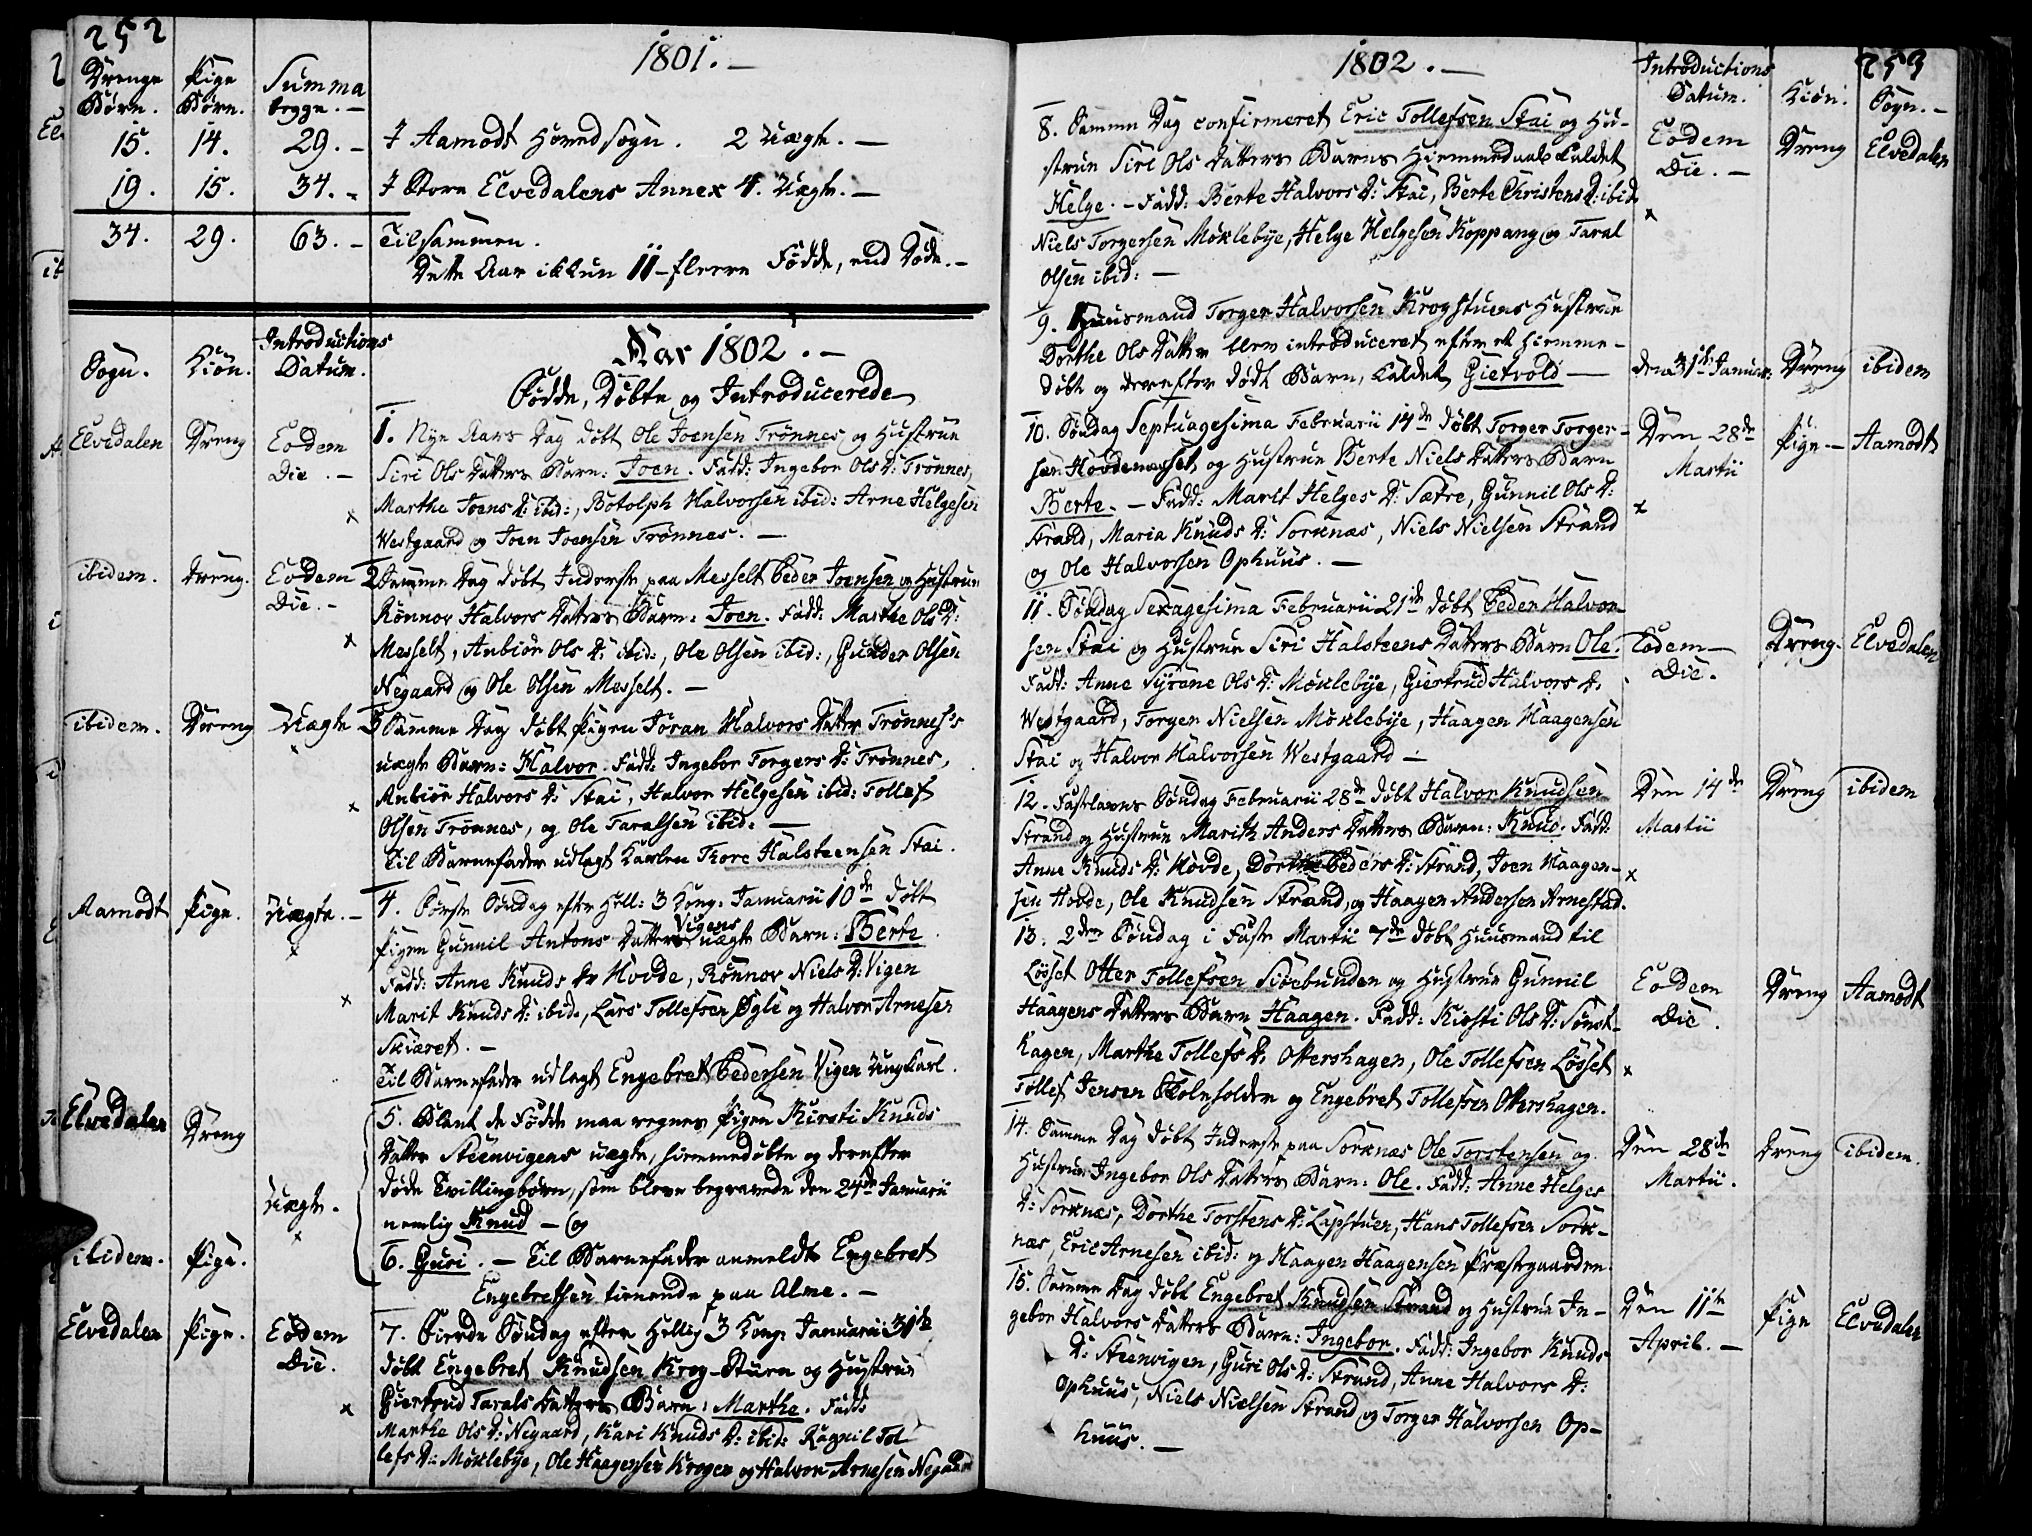 252
1801. —
Drenge Børn. Pige Børn. Summa begge. —
15. 14. 29. — I Aamodt Hovedsogn. 2 Uægte. —
19. 15. 34. — I Store Elvedalens Annex 4. Uægte. —
34. 29. 63. — Tilsammen.
Dette Aar ikkun 11 fleere Fødde, end Døde. —
Sogn. Kiøn. Introductions Datum.
Aar 1802. —
Fødde, Døbte og Introducerede
Elvedalen Dreng Eodem Die. —
1. Nye Aars Dag døbt Ole Joensen Trønnes og Hustrue
Siri Ols Datters Barn: Joen. Fadd: Ingebor Ols D: Trønnes,
Marthe Joens D: ibid:, Botolph Halvorsen ibid: Arne Helgesen
Westgaard og Joen Joensen Trønnes. —
ibidem. Dreng. Eodem Die. —
2. Samme Dag døbt Inderste paa Messelt Peder Joensen og Hustrue
Rønnov Halvors Datters Barn: Joen. Fadd: Marthe Ols D:
Messelt, Anbiør Ols D: ibid:, Ole Olsen ibid:, Gunder Olsen
Negaard og Ole Olsen Messelt. —
ibidem. Dreng Uægte
3 Samme Dag døbt Pigen Joran Halvors Datter Trønnes's
uægte Barn: Halvor. Fadd: Ingebor Torgers D: Trønnes,
Anbiør Halvors D: Stai, Halvor Helgesen ibid: Tollef
Olsen Trønnes, og Ole Taralsen ibid: —
Til Barnefader udlagt Karlen Tore Halsteensen Stai.
Aamodt Pige. Uægte. —
4. Første Søndag efter Hell: 3 Kong. Januarii 10de døbt
Pigen Gunnil Antons Datters Vigens uægte Barn: Berte.
Fadd: Anne Knuds D: Hovde, Rønnov Niels D: Vigen
Marit Knuds D: ibid., Lars Tollefsen Øgle og Halvor Arnesen
Skiæret. —
Til Barnefader udlagt Engebret Pedersen Vigen Ung Karl.
Elvedalen Dreng Uægte.
5. Blant de Fødde maa regnes Pigen Kirsti Knuds
Datter Steenvigens uægte, hiemmedøbte og derefter
døde Tvillingbørn, som bleve begravede den 24de Januarii
nemlig Knud — og
ibidem. Pige.
6. Guri. — Til Barnefader anmeldt Engebret
Engebretsen tienende paa Alme. —
Elvedalen Pige. Eodem Die.
7. Fierde Søndag efter Hellig 3 Kong: Januarii 31te
døbt Engebret Knudsen Krog-Stuen og Hustrue
Giertrud Tarals Datters Barn: Marthe. Fadd:
Marthe Ols D: Negaard, Kari Knuds D: ibid: Ragnil Tol-
lefs D: Møklebye, Ole Haagensen Krogen og Halvor Arnesen Negaard
1802. —
Introductions Datum. Kiøn. Sogn. —
253
8. Samme Dag confirmeret Eric Tollefsen Stai og Hu-
strue Siri Ols Datters Barns Hiemmedaab kaldet
Helge. — Fadd: Berte Halvors D: Stai, Berte Christens D: ibid:
Niels Torgersen Møklebye, Helge Helgesen Koppang og Taral
Olsen ibid: —
Eodem Die. — Dreng Elvedalen
9. Huusmand Torger Halvorsen Krogstuens Hustrue
Dorthe Ols Datter blev introduceret efter et hiemme-
døbt og derefter dødt Barn, kaldet Gietvold —
den 31te Januar: Dreng ibidem
10. Søndag Septuagesima Februarii 14de døbt Torger Torger-
sen Hovdemoeset og Hustrue Berte Niels Datters Barn
Berte. — Fadd: Marit Helges D: Sætre, Gunnil Ols D:
Strand, Maria Knuds D: Sorknæs, Niels Nielsen Strand
og Ole Halvorsen Ophuus. —
Den 28de Martii Pige — Aamodt
11. Søndag Sexagesima Februarii 21de døbt Peder Halvor-
sen Stai og Hustrue Siri Halsteens Datters Barn Ole.
Fadd: Anne Syrene Ols D: Møklebye, Giertrud Halvors D:
Westgaard, Torger Nielsen Møklebye, Haagen Haagensen
Stai og Halvor Halvorsen Westgaard —
Eodem — Die. Dreng. Elvedalen
12. Fastelavns Søndag Februarii 28de døbt Halvor Knudsen
Strand og Hustrue Marith Anders Datters Barn: Knud. Fadd:
Anne Knuds D: Hovde, Dorthe Peders D: Strand, Joen Haagen-
sen Hovde, Ole Knudsen Strand, og Haagen Andersen Arnestad.
Den 14de Martii Dreng ibidem
13. 2den Søndag i Faste Martii 7de døbt Huusmand til
Løsset Otter Tollefsen Siøebunden og Hustrue Gunnil
Haagens Datters Barn Haagen. Fadd: Kirsti Ols D: Sønst-
hagen, Marthe Tollefs D: Ottershagen, Ole Tollefsen Løsset
Tollef Jensen Skoleholder og Engebret Tollefsen Ottershagen.
Eodem Die. Dreng Aamodt
14. Samme Dag døbt Inderste paa Sorknæs Ole Torstensen og
Hustrue Ingebor Ols Datters Barn: Ole. Fadd: Anne Helges
D: Sorknæs, Dorthe Torstens D: Lapstuen, Hans Tollefsen Sork-
næs, Eric Arnesen ibid: og Haagen Haagensen Præstegaarden.
Den 28de Martii. Dreng ibidem.
15. Samme Dag døbt Engebret Knudsen Strand og Hustrue In-
gebor Halvors Datters Barn: Ingebor. Fadd: Ingebor Knuds
D: Steenvigen, Guri Ols D: Strand, Anne Halvors D:
Ophuus, Niels Nielsen Strand og Torger Halvorsen Op-
huus. —
Den 11te April. — Pige Elvedalen